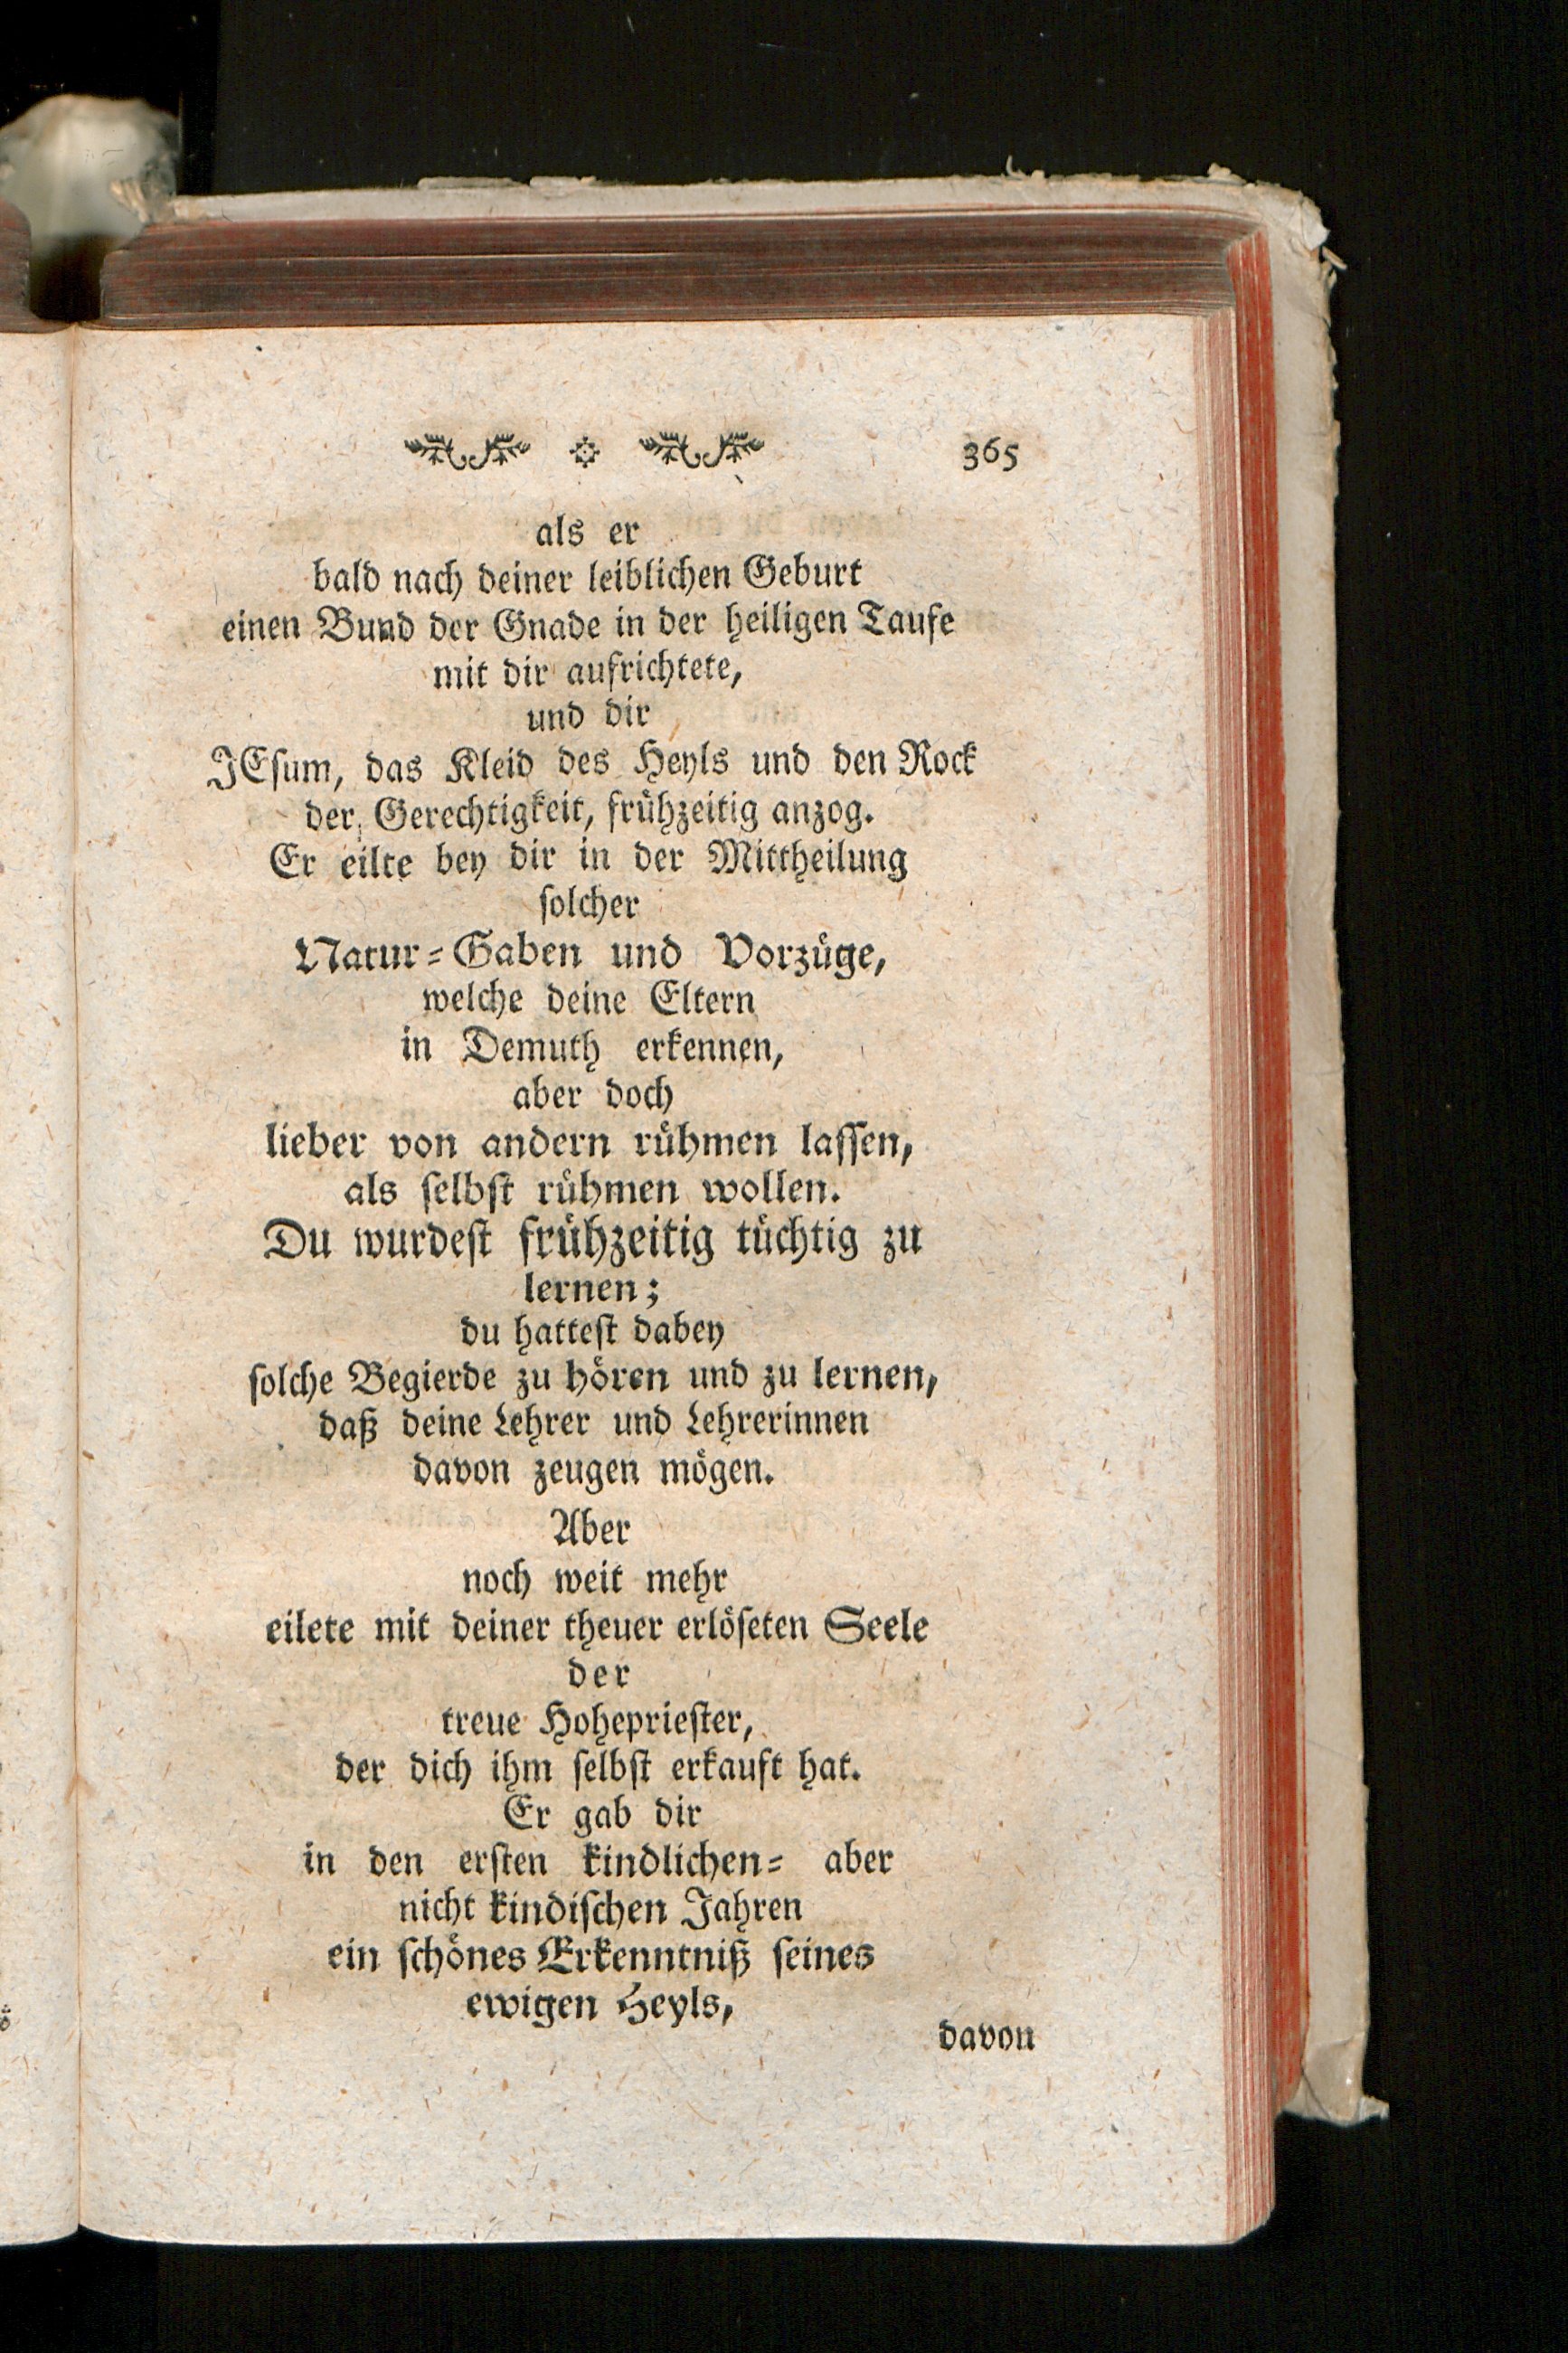 365
als er
bald nach deiner leiblichen Geburt
einen Bund der Gnade in der heiligen Taufe
mit dir aufrichtete,
und dir
JEsum, das Kleid des Heyls und den Rock
der Gerechtigkeit, frühzeitig anzog.
Er eilte bey dir in der Mittheilung
solcher
Natur-Gaben und Vorzüge,
welche deine Eltern
in Demuth erkennen,
aber doch
lieber von andern rühmen lassen,
als selbst rühmen wollen.
Du wurdest frühzeitig tüchtig zu
lernen;
du hattest dabey
solche Begierde zu hören und zu lernen,
daß deine Lehrer und Lehrerinnen
davon zeugen mögen.
Aber
noch weit mehr
eilete mit deiner theuer erlöseten Seele
der
treue Hohepriester,
der dich ihm selbst erkauft hat.
Er gab dir
in den ersten kindlichen- aber
nicht kindischen Jahren
ein schönes Erkenntniß seines
ewigen Heyls,
davon